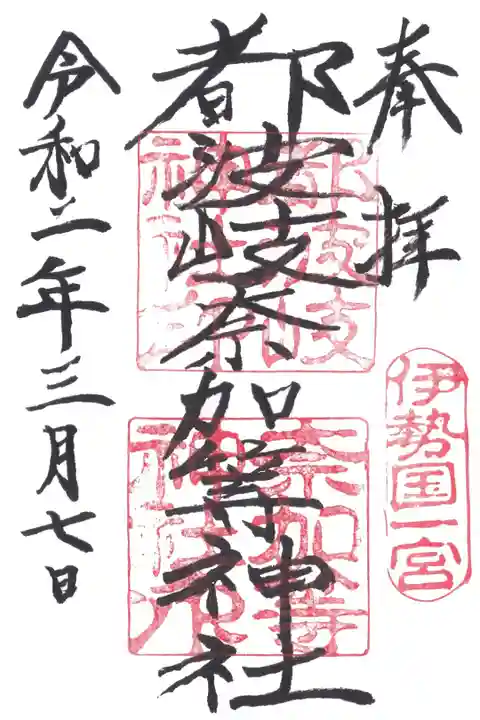 奉拝
伊勢国一宮
都波岐奈加等神社
都波岐神社印
奈加等神社印
令和二年三月七日